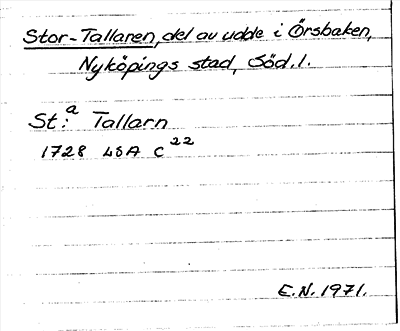 Stor-Tallaren, del av udde i Örsbaken,
Nyköpings stad, Söd.l.
St:a Tallarn
1728 LSA C22
E.N. 1971.